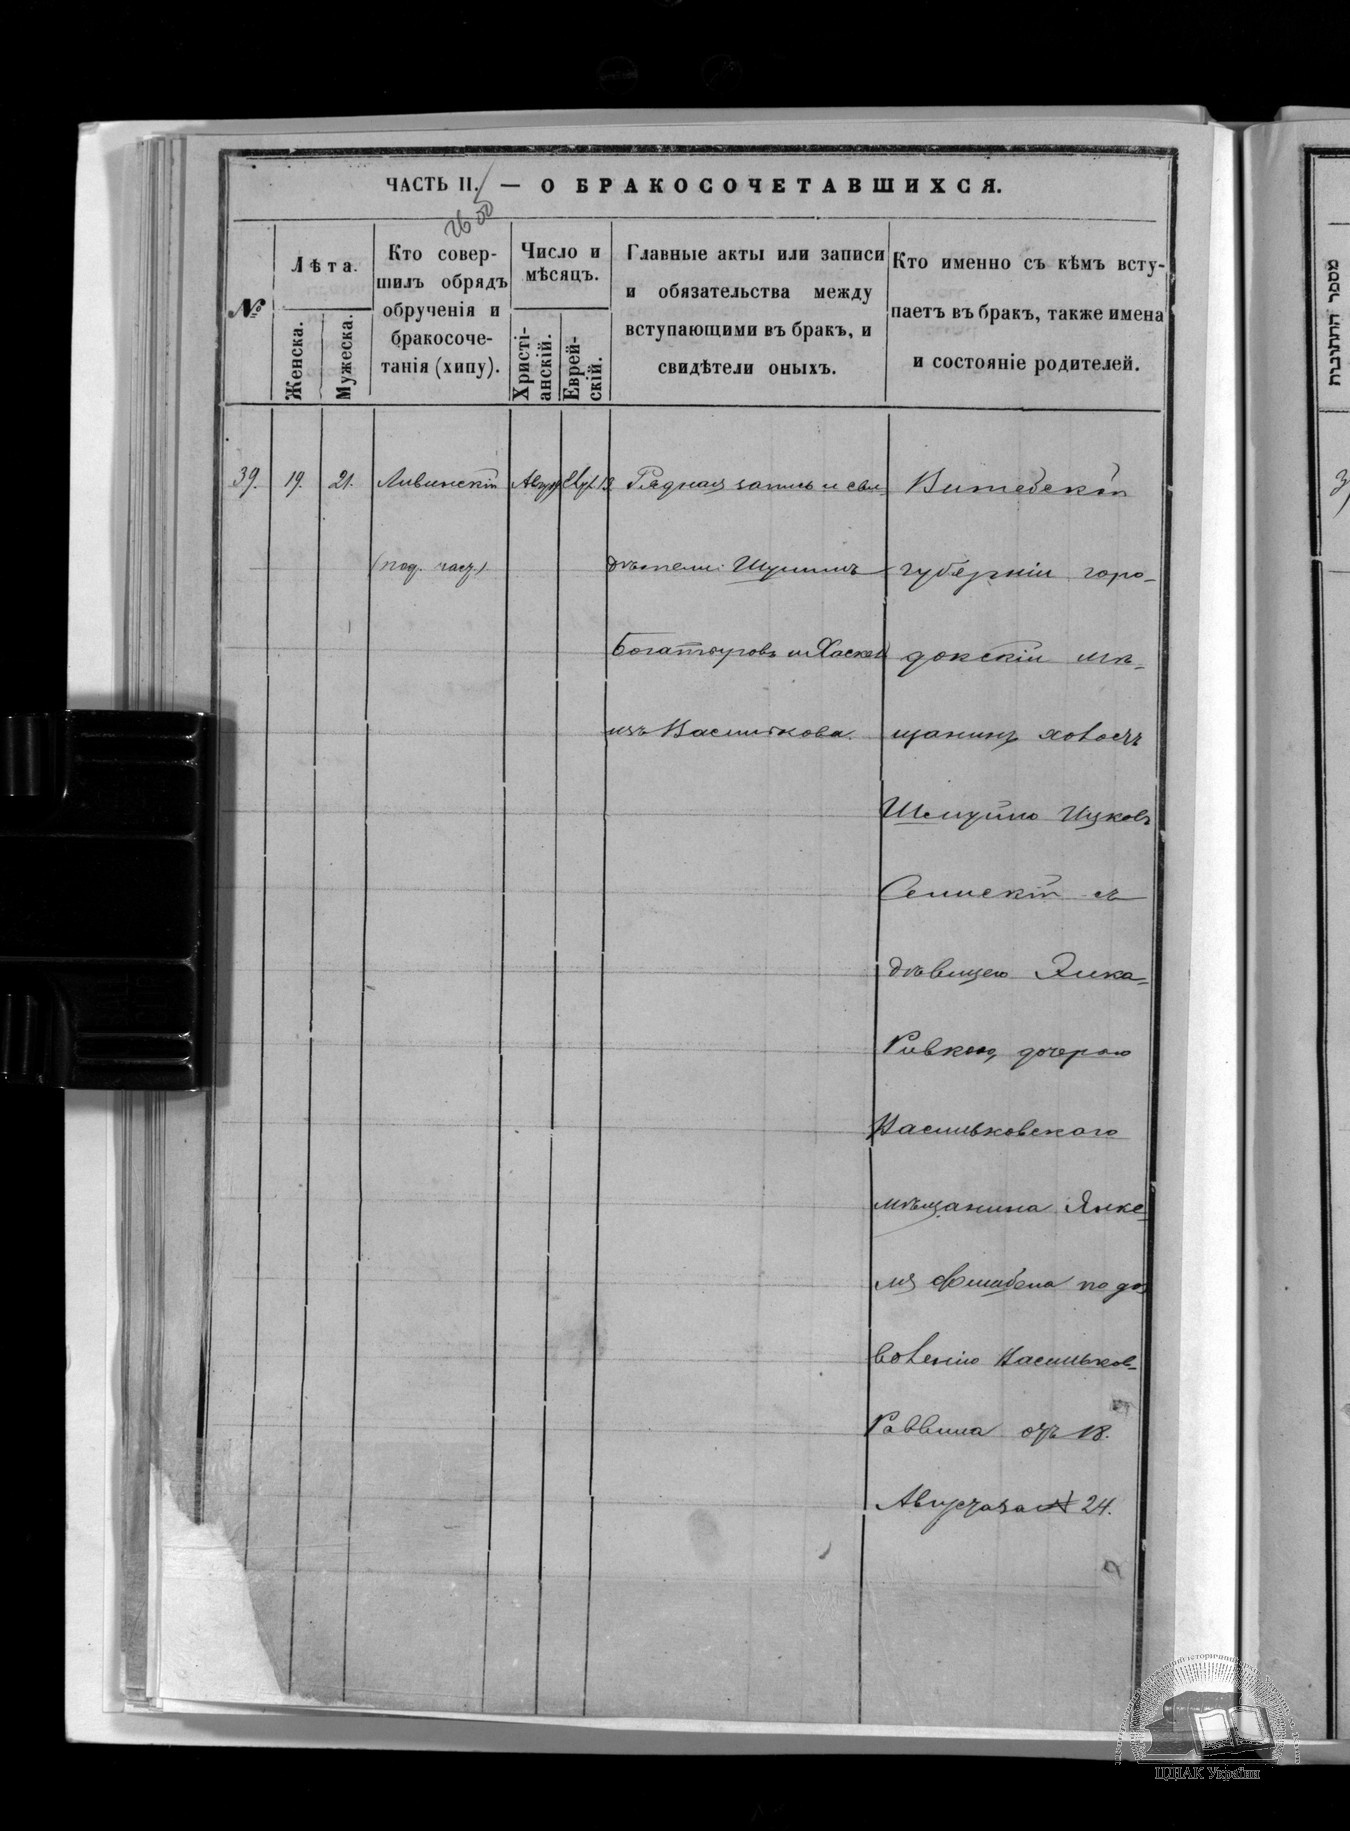 ЧАСТЬ II. — О БРАКОСОЧЕТАВШИХСЯ.
2605
№
Лѣта.
Женска.
Мужеска.
Кто совер-
шилъ обрядъ
обрученія и
бракосоче-
танія (хипу).
Число и
мѣсяцъ.
Христі-
анскій.
Еврей-
скій.
Главные акты или записи
и обязательства между
вступающими въ бракъ, и
свидѣтели оныхъ.
Кто именно съ кѣмъ всту-
паетъ въ бракъ, также имена
и состояніе родителей.
39.
19.
21.
Ливинскій
(под. часу.)
Рядная запись и сви-
дѣтели: Шулимъ
Богатыровъ и Хаскел
изъ Василькова.
Витебскій
губерніи горо-
докскій мѣ-
щанинъ холостъ
Шмуйло Ицковъ
съ
дѣвицею Элка-
Ривкою, дочерью
Васильковскаго
мѣщанина Янке-
ля по доз
воленію Васильков-
Раввина отъ 18.
Августа за № 24.
מספר החתונות
ЦДІАК України